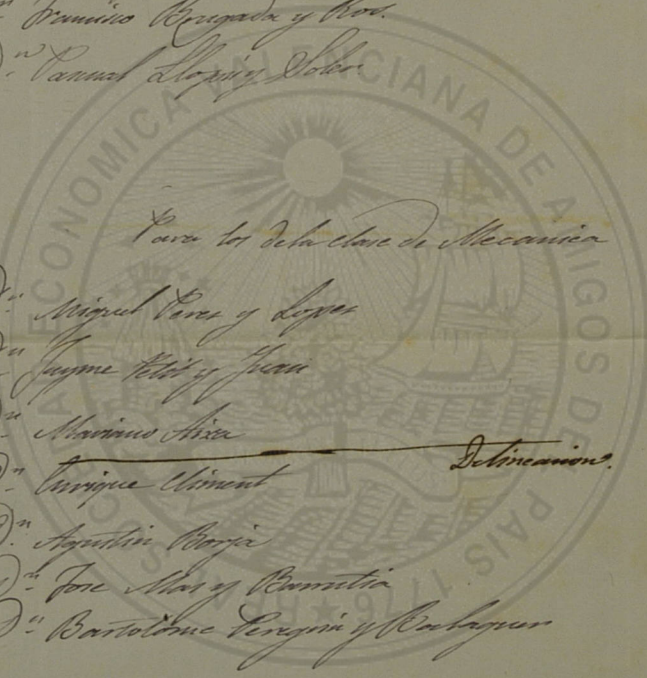 Francisco Brugada y Ros.
Dn. Pascual Llopis y Soler
Para los de la clase de Mecanica
Dn. Miguel Perez y Lopez
Dn. Jayme y Juan
Dn. Mariano Aixa
Delineacion.
Dn. Enrique Climent
Dn. Agustin Borja
Dn. Jose Mas y
Dn. Bartolome Peregrin y Balaguer
REAL SOCIEDAD ECONOMICA VALENCIANA DE AMIGOS DEL PAIS 1776